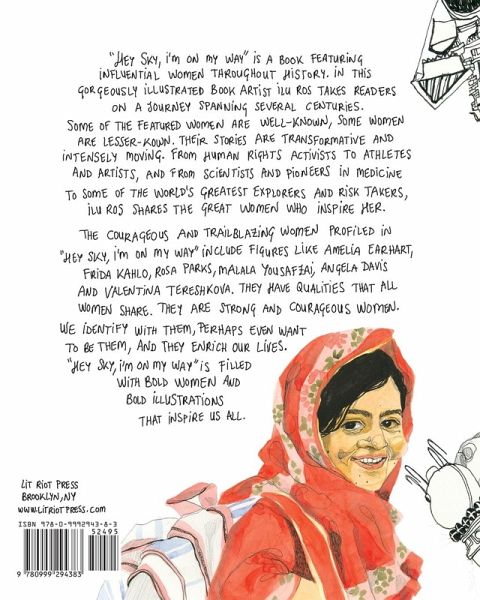 "HEY SKY, I'M ON MY WAY" IS A BOOK FEATURING
INFLUENTIAL WOMEN THROUGHOUT HISTORY. IN THIS
GORGEOUSLY ILLUSTRATED BOOK ARTIST ILU ROS TAKES READERS
ON A JOURNEY SPANNING SEVERAL CENTURIES.
SOME OF THE FEATURED WOMEN ARE WELL-KNOWN, SOME WOMEN
ARE LESSER-KOWN. THEIR STORIES ARE TRANSFORMATIVE AND
INTENSELY MOVING. FROM HUMAN RIGHTS ACTIVISTS TO ATHLETES
AND ARTISTS, AND FROM SCIENTISTS AND PIONEERS IN MEDICINE
TO SOME OF THE WORLD'S GREATEST EXPLORERS AND RISK TAKERS,
ILU ROS SHARES THE GREAT WOMEN WHO INSPIRE HER.
THE COURAGEOUS AND TRAILBLAZING WOMEN PROFILED IN
"HEY SKY, I'M ON MY WAY" INCLUDE FIGURES LIKE AMELIA EARHART,
FRIDA KAHLO, ROSA PARKS, MALALA YOUSAFZAI, ANGELA DAVIS
AND VALENTINA TERESHKOVA. THEY HAVE QUALITIES THAT ALL
WOMEN SHARE. THEY ARE STRONG AND COURAGEOUS WOMEN.
WE IDENTIFY WITH THEM, PERHAPS EVEN WANT
TO BE THEM, AND THEY ENRICH OUR LIVES.
"HEY SKY, I'M ON MY WAY" IS FILLED
WITH BOLD WOMEN AND
BOLD ILLUSTRATIONS
THAT INSPIRE US ALL.
LIT RIOT PRESS
BROOKLYN, NY
WWW.LITRIOTPRESS.COM
ISBN 978-0-9992943-8-3
52495
9 780999 294383